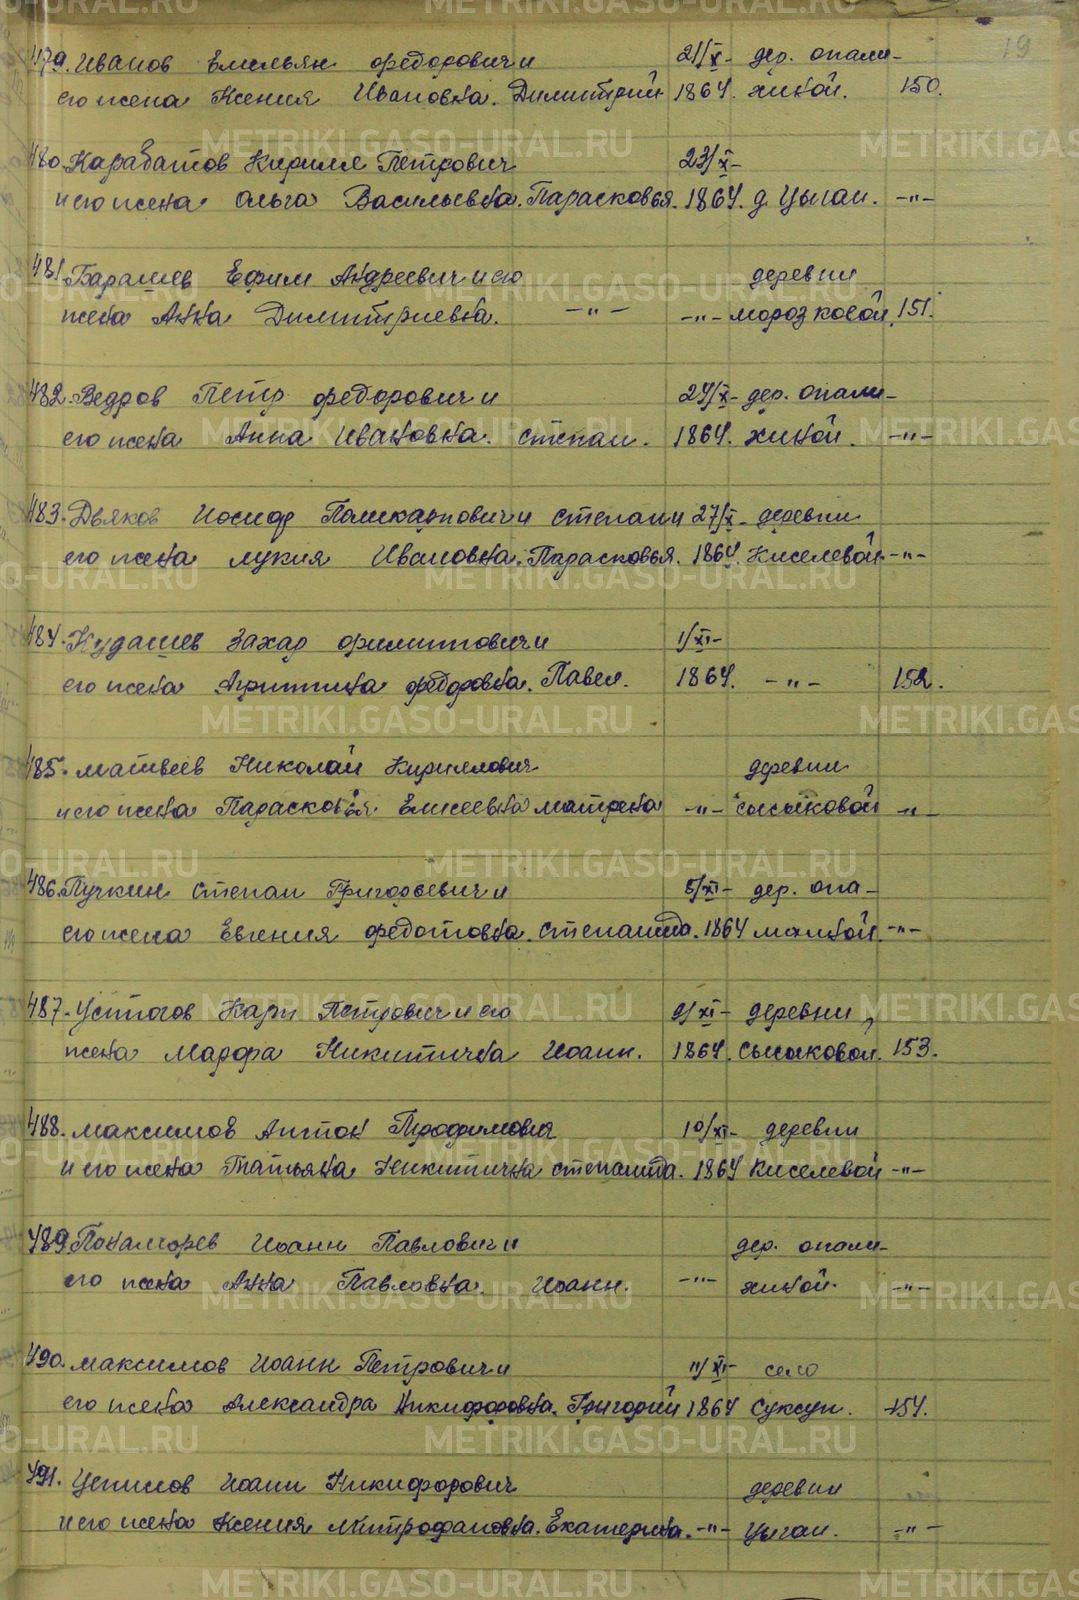 19
479. Иванов Емельян Федорович и 21/X- дер. Опали-
его жена Ксения Ивановна. Димитрий 1864. хиной. 150.
480. Карабатов Кирилл Петрович 23/X-
и его жена Ольга Васильевна. Парасковья. 1864. д. Цыган. -"-
481. Барашев Ефим Андреевич и его деревни
жена Анна Димитриевна. -"- -"- Морозковой. 151.
482. Ведров Петр Федорович и 24/X- дер. Опали-
его жена Анна Ивановна. Степан. 1864. хиной. -"-
483. Двяков Иосиф Паликарпович и Степан и 27/X- деревни
его жена Лукия Ивановна. Парасковья. 1864. Киселевой -"-
484. Кудашев Захар Филиппович и 1/XI-
его жена Агриппина Федоровна. Павел. 1864. -"- 152.
485. Матвеев Николай Кириллович деревни
и его жена Парасковья Елисеевна Матрена -"- Сысыковой -"-
486. Пучкин Степан Григорьевич и 5/XI- дер. Опа-
его жена Евгения Федотовна. Степанида. 1864 -"-
487. Устюгов Карп Петрович и его 9/XI- деревни
жена Марфа Никитична Иоанн. 1864. 153.
488. Максимов Антон Трофимович 10/XI- деревни
и его жена Татьяна Никитична Степанида. 1864 Киселевой -"-
489. Понаморев Иоанн Павлович и дер. Опали-
его жена Анна Павловна. Иоанн. -"- хиной. -"-
490. Максимов Иоанн Петрович и 11/XI- село
его жена Александра Никифоровна. Григорий 1864 Суксун. 154.
491. Цепилов Иоанн Никифорович деревни
и его жена Ксения Митрофановна. Екатерина. -"- Цыган. -"-
METRIKI.GASO-URAL.RU